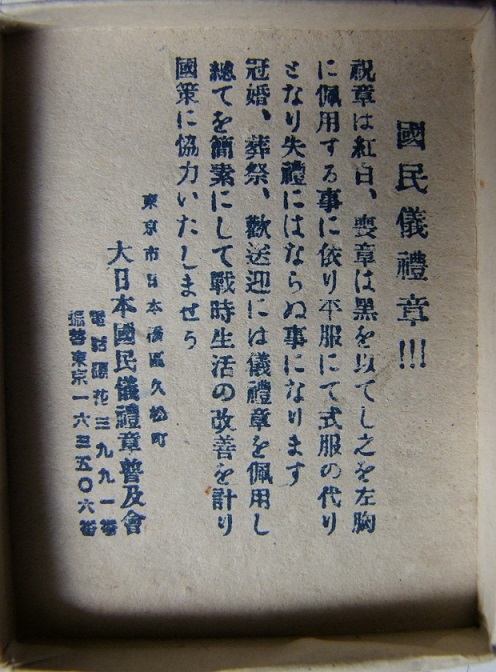 國民儀禮章!!!
祝章は紅白、喪章は黑を以てし之を左胸
に佩用する事に依り平服にて式服の代り
となり失禮にはならぬ事になります
冠婚、葬祭、歡送迎には儀禮章を佩用し
總てを簡素にして戰時生活の改善を計り
國策に協力いたしませう
東京市日本橋區久松町
大日本國民儀禮章普及會
電話浪花三九九一番
振替東京一六三五〇六番